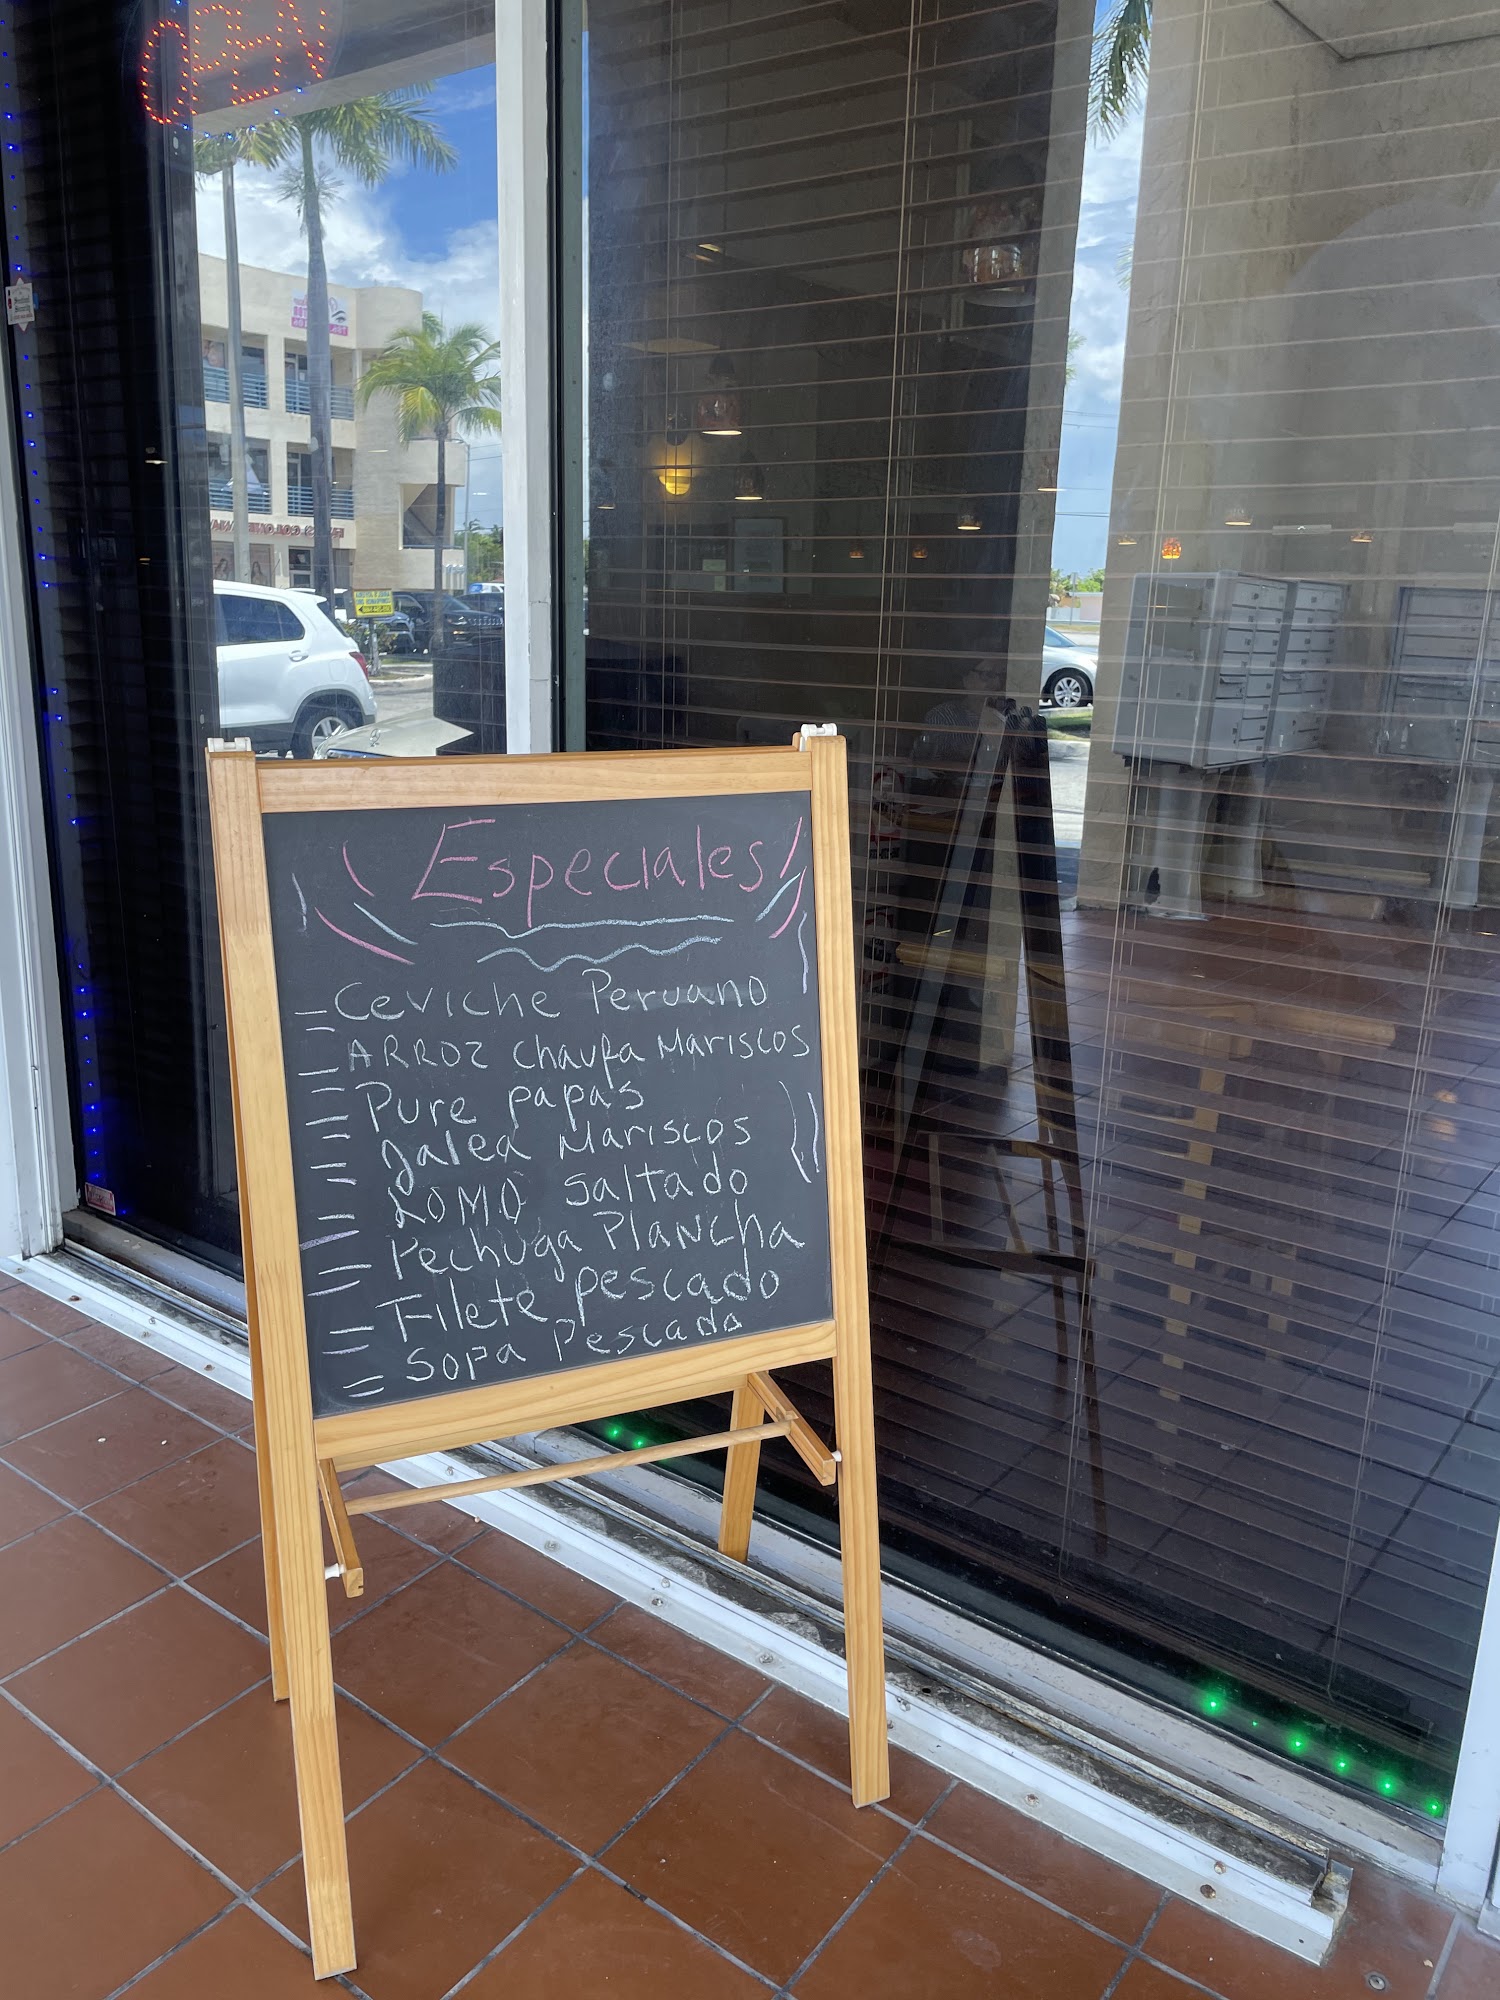 OPEN
Especiales
Ceviche Peruano
ARROZ Chaufa Mariscos
Pure papas
Jalea Mariscos
LOMO Saltado
Pechuga PLANCha
Filete pescado
Sopa Pescado